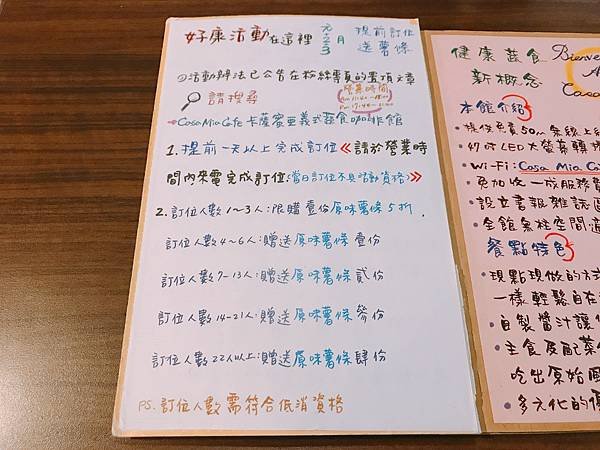 好康活動在這裡 元.2.3月 提前訂位
送薯條
①活動辦法已公告在粉絲專頁的置頂文章
請搜尋
營業時間
→Casa Mia Cafe 卡薩蜜亞義式蔬食咖啡館
1. 提前一天以上完成訂位《請於營業時
間內來電完成訂位(當日訂位不具活動資格)》
2. 訂位人數1~3人:限購壹份原味薯條5折.
訂位人數4~6人:贈送原味薯條壹份
訂位人數7-13人:贈送原味薯條貳份
訂位人數14-21人:贈送原味薯條參份
訂位人數22人以上:贈送原味薯條肆份
PS. 訂位人數需符合低消資格
健康蔬食 Bienve
新概念 Casa
本館介紹
•提供免費50m無線上
•吋LED大螢幕轉播
•Wi-Fi:Casa Mia. Ca
•免加收一成服務費
•設立書報雜誌區
•全館無柱空間適
餐點特色
•現點現做的方式
一樣輕鬆自在
•自製醬汁讓
•主食及配菜
吃出原始風
•多元化的